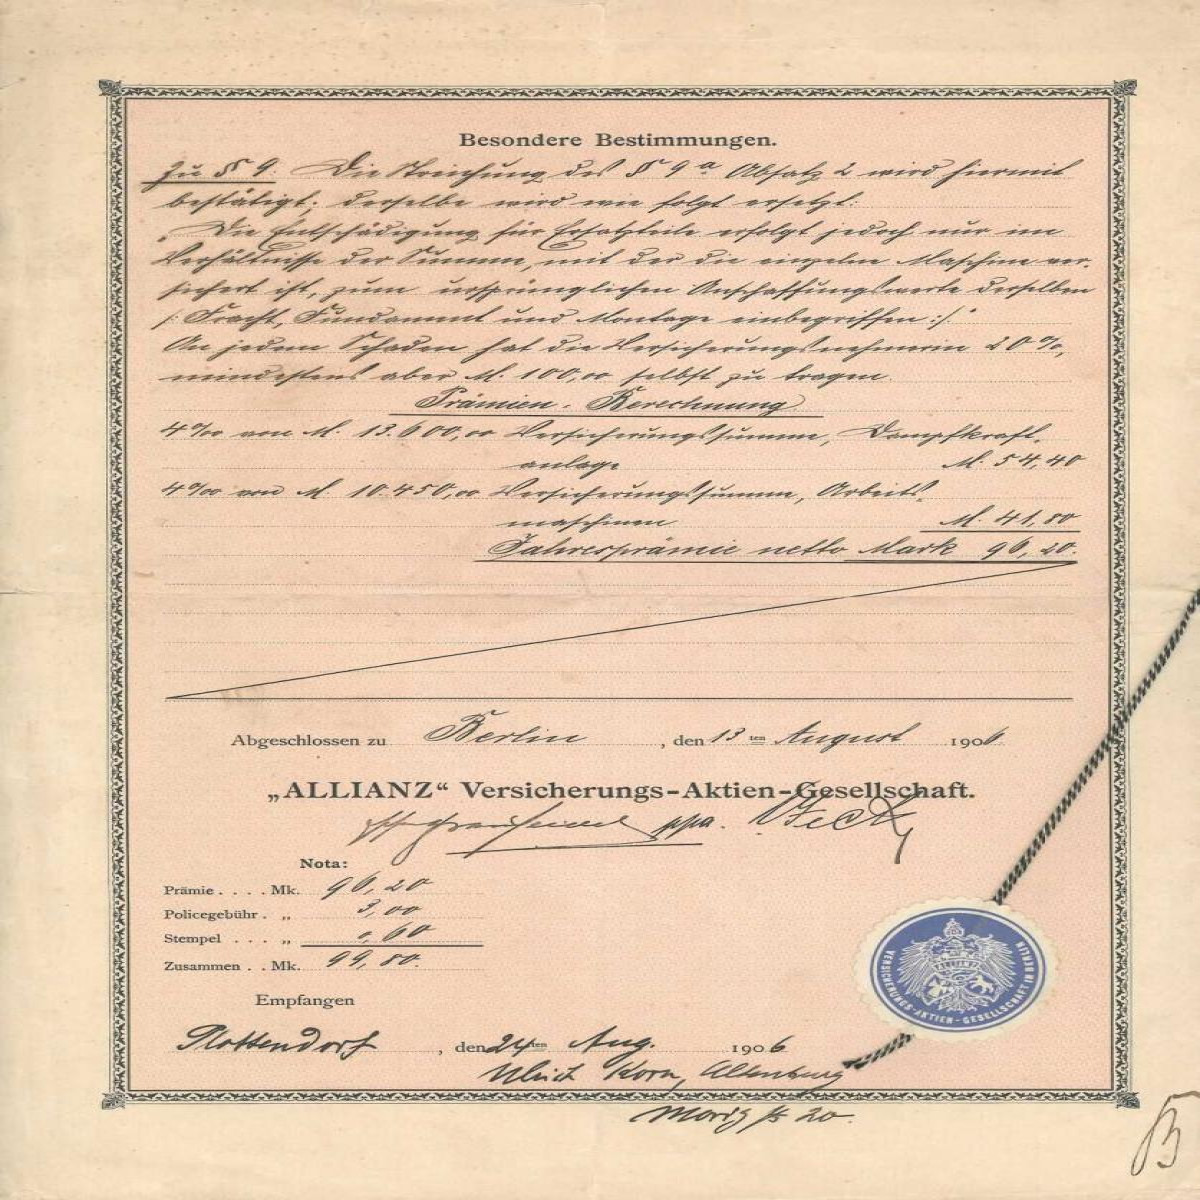 Besondere Bestimmungen.
Zu § 9. Die Streichung des § 9 a Absatz 2 wird hiermit
bestätigt; derselbe wird wie folgt ersetzt:
„Die Entschädigung für Ersatzteile erfolgt jedoch nur im
Verhältnisse der Summe, mit der die einzelne Maschine ver-
sichert ist, zum ursprünglichen Anschaffungswerte derselben
/: Fracht, Fundament und Montage einbegriffen :/.“
An jedem Schaden hat die Versicherungsnehmerin 20%,
mindestens aber M. 100,00 selbst zu tragen.
Prämien-Berechnung
4‰ von M. 13.600,00 Versicherungssumme, Dampfkraft-
anlage M. 54,40
4‰ von M. 10.450,00 Versicherungssumme, Arbeits-
maschinen M. 41,80
Jahresprämie netto Mark 96,20.
Abgeschlossen zu Berlin, den 13ten August 1906.
„ALLIANZ“ Versicherungs-Aktien-Gesellschaft.
ppa.
Nota:
Prämie .... Mk. 96,20
Policegebühr . „ 3,00
Stempel ... „ 0,60
Zusammen .. Mk. 99,80.
Empfangen
ALLIANZ
VERSICHERUNGS-AKTIEN-GESELLSCHAFT IN BERLIN
Plottendorf, den 24ten Aug. 1906
Ulrich Korn, Altenburg
20.